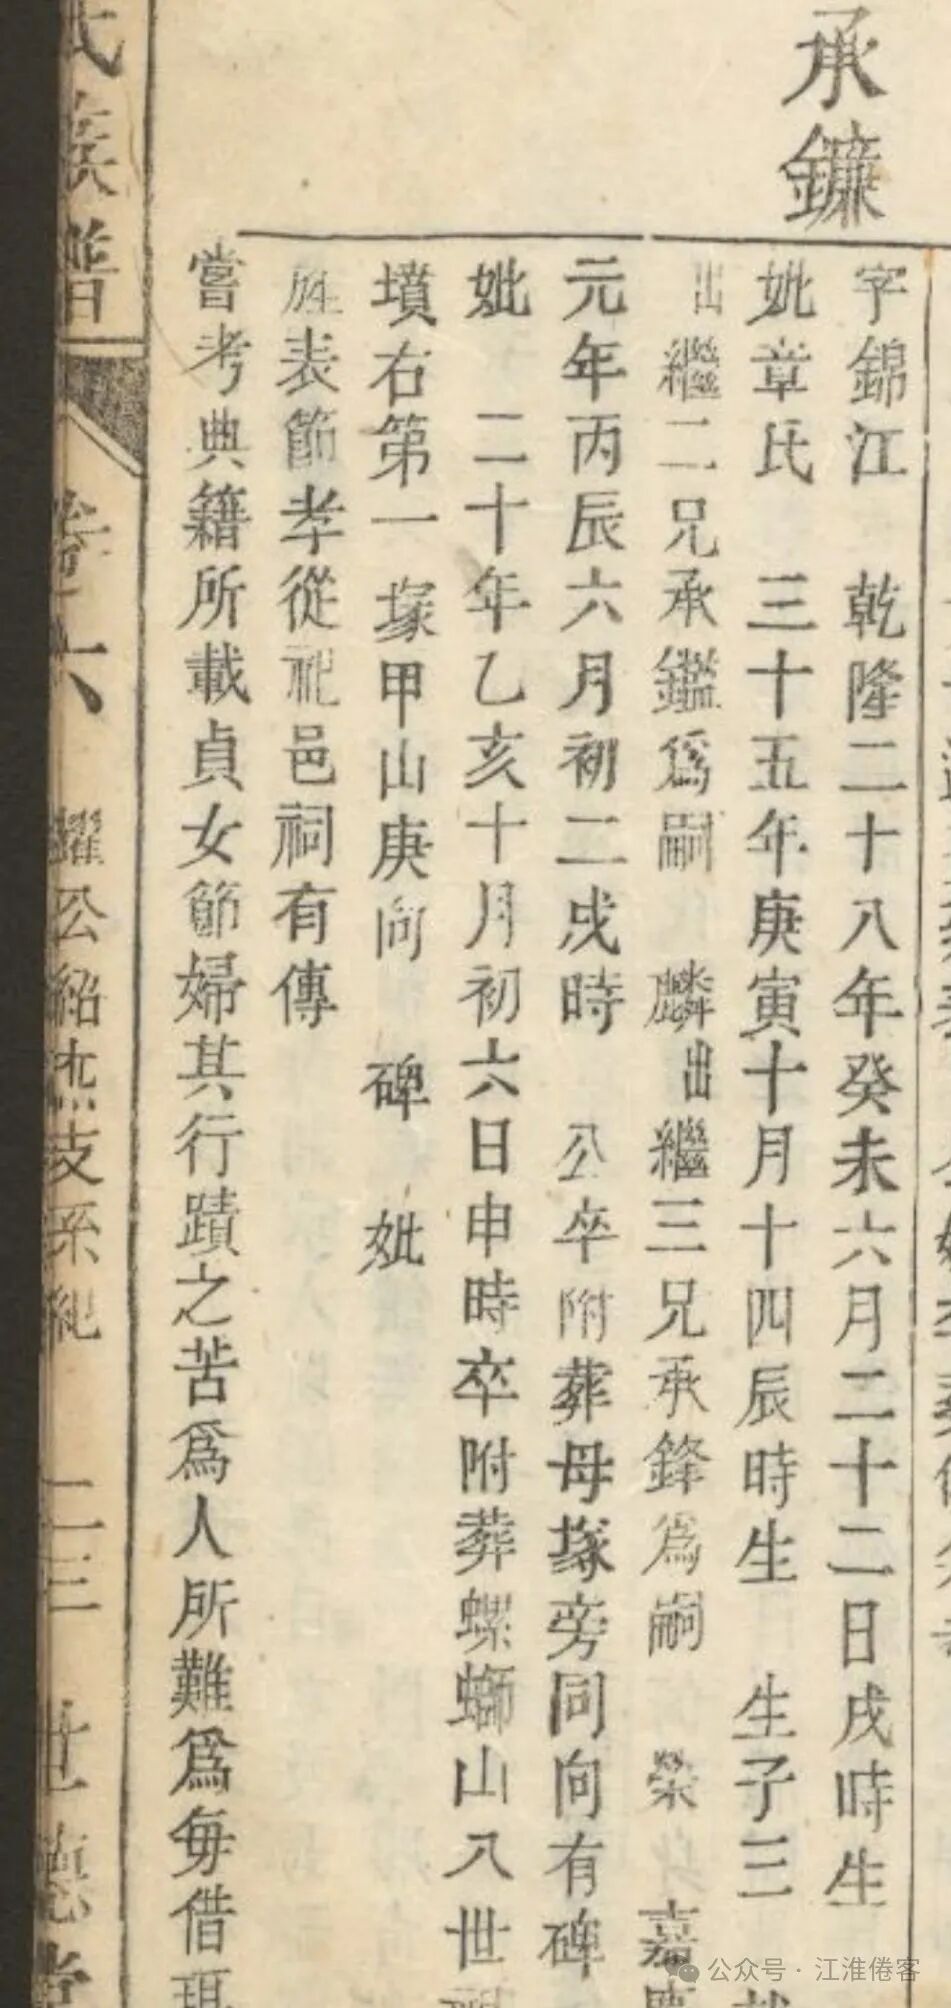 承鐮
字錦江 乾隆二十八年癸未六月二十二日戌時生
妣章氏 三十五年庚寅十月十四辰時生 生子三
出繼二兄承鑑爲嗣 麟出繼三兄承鋒爲嗣 榮 嘉慶
元年丙辰六月初二戌時 公卒附葬母塚旁同向有碑
妣 二十年乙亥十月初六日申時卒附葬螺螄山八世
墳右第一塚甲山庚向 碑 妣
旌表節孝從祀邑祠有傳
嘗考典籍所載貞女節婦其行蹟之苦爲人所難爲每借
氏族譜
卷六
公紹杰支系紀
二三
世德堂
公众号·江淮倦客